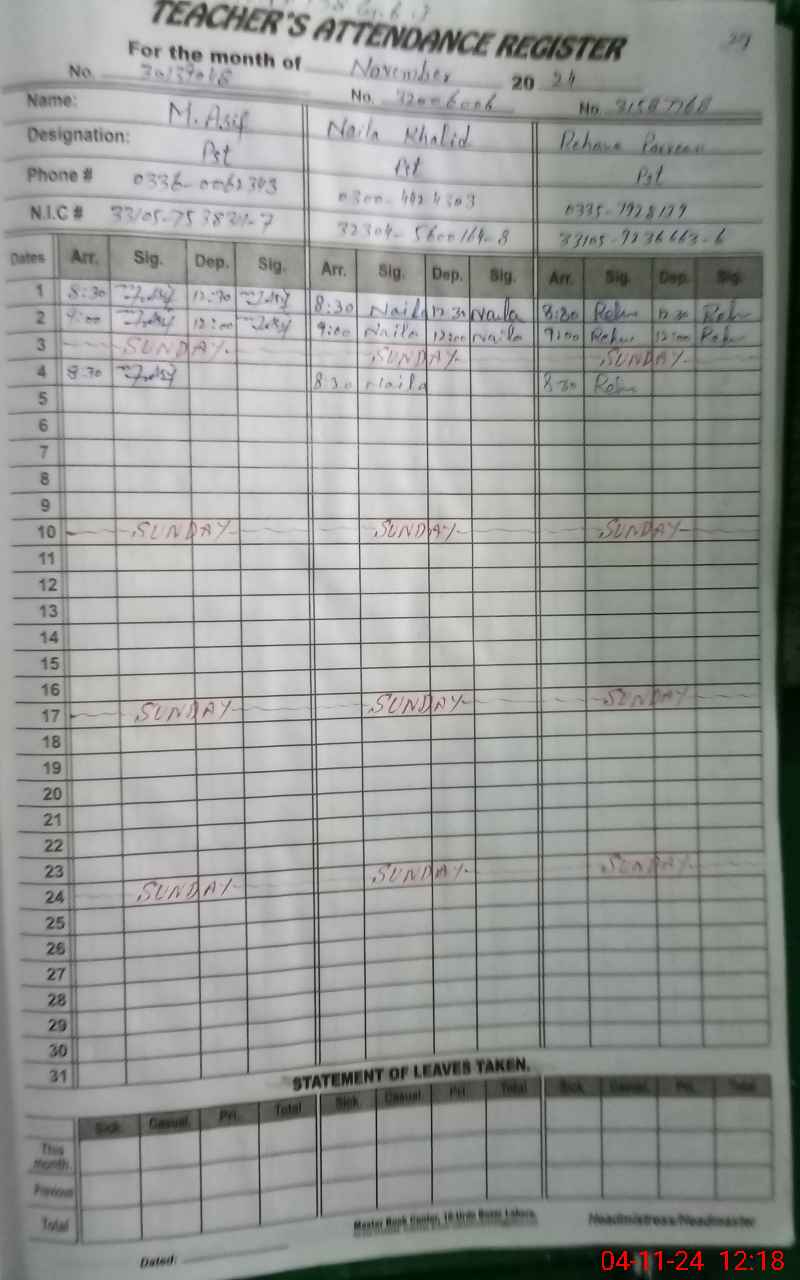 TEACHER'S ATTENDANCE REGISTER
For the month of November 20 24
No. No. 32006006 No. 31587768
Name: M. Asif Naila Khalid Rehana Parveen
Designation: Pst Pst Pst
Phone # 0336-0062303
N.I.C #
Dates Arr. Sig. Dep. Sig. Arr. Sig. Dep. Sig. Arr. Sig. Dep. Sig.
1 8:30 12:30 8:30 Naila 12:30 Naila 8:30 Rehn 12:30 Rehn
2 9:00 12:00 9:00 Naila 12:00 Naila 9:00 Rehn 12:00 Rehn
3 SUNDAY SUNDAY SUNDAY
4 8:30 8:30 Naila 8:30 Rehn
5
6
7
8
9
10 SUNDAY SUNDAY SUNDAY
11
12
13
14
15
16
17 SUNDAY SUNDAY SUNDAY
18
19
20
21
22
23
24 SUNDAY SUNDAY SUNDAY
25
26
27
28
29
30
31
STATEMENT OF LEAVES TAKEN.
Sick. Casual. Pri. Total Sick. Casual. Pri. Total Sick. Casual. Pri. Total
This month.
Previous
Total
Master Book Center, 16 Urdu Bazar Lahore. Headmistress/Headmaster
Dated:
04-11-24 12:18